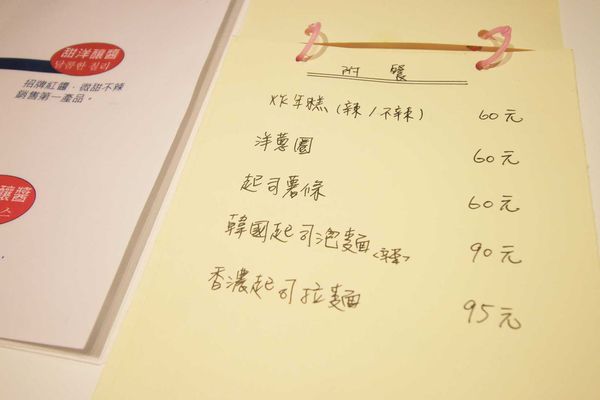 甜洋釀醬
달콤한 칠리
招牌紅醬、微甜不辣
銷售第一產品。
釀醬
소스
附餐
炸年糕(辣/不辣) 60元
洋蔥圈 60元
起司薯條 60元
韓國起司泡麵 90元
香濃起司拉麵 95元